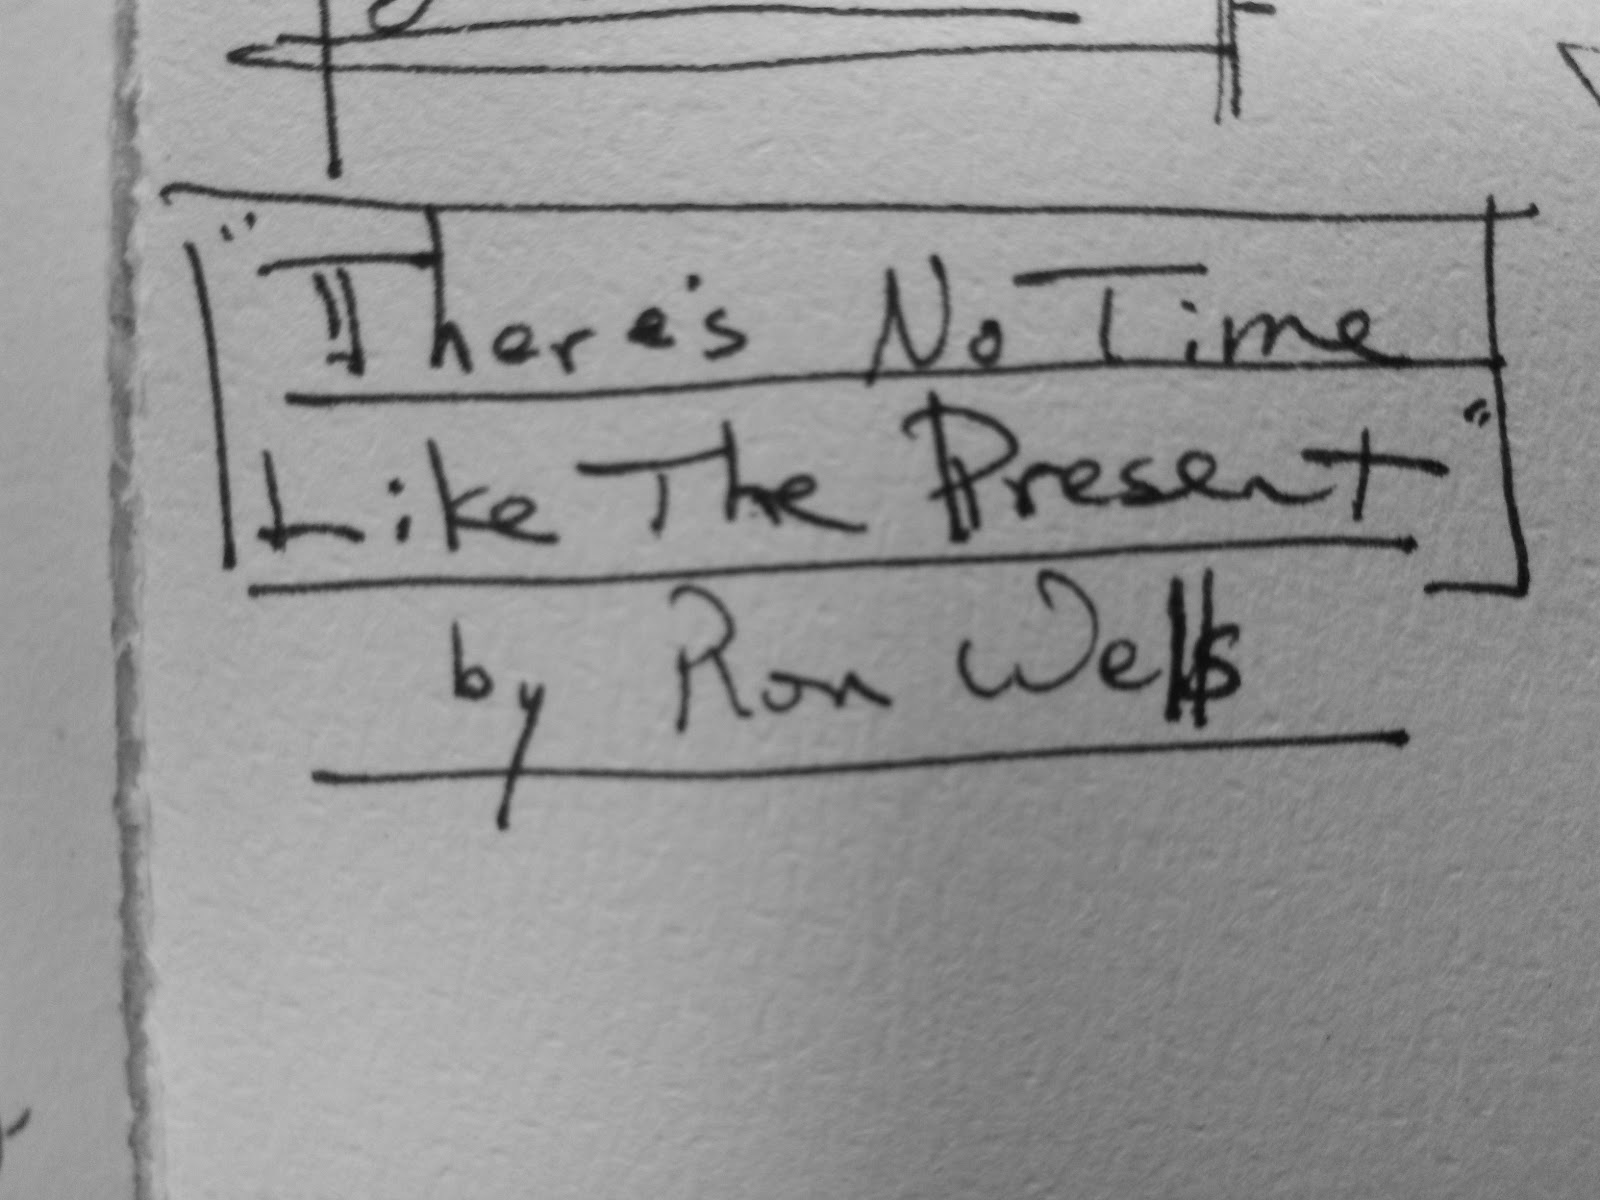 "There's No Time
Like The Present"
by Ron Wells